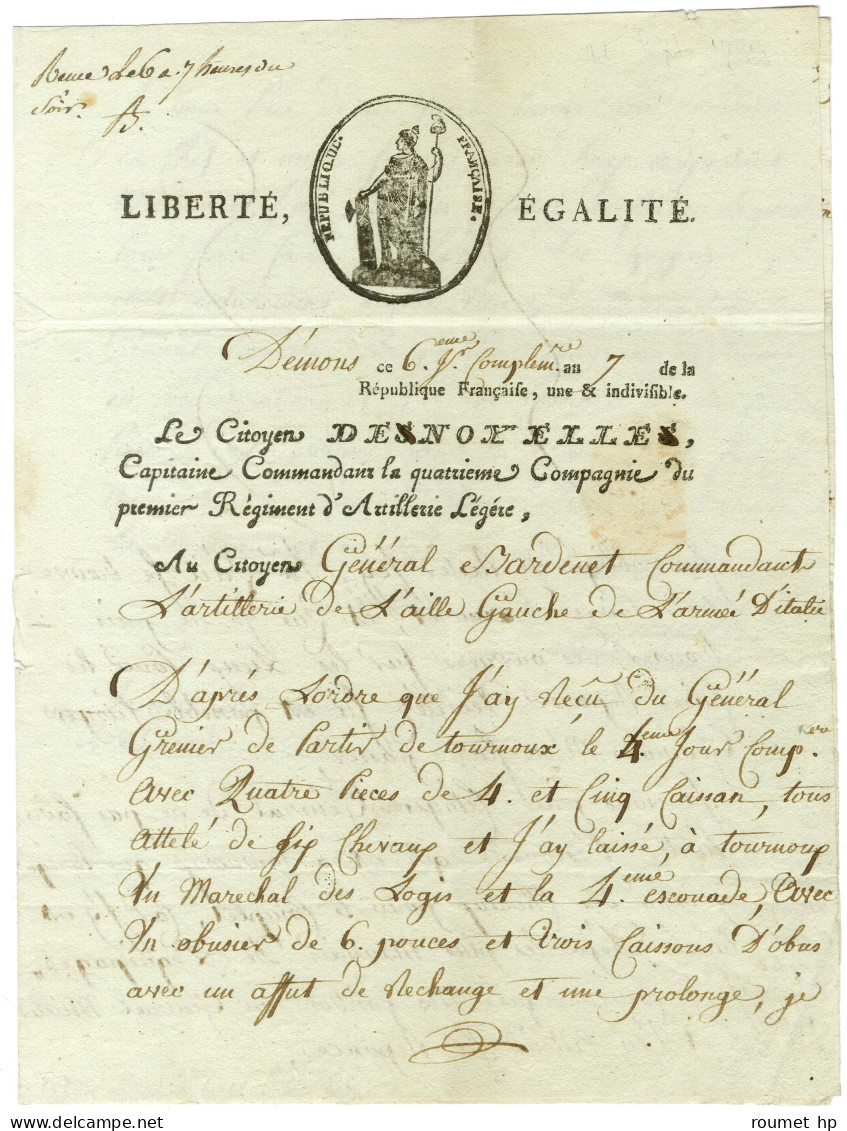 Recue le 6 a 7 heures du
Soir. B.
RÉPUBLIQUE. FRANÇAISE.
LIBERTÉ, ÉGALITÉ.
Démons ce 6.eme Jr. Complem.re an 7 de la
République Françaiſe, une & indiviſible.
Le Citoyen DESNOYELLES,
Capitaine Commandant la quatrieme Compagnie du
premier Régiment d'Artillerie Légére,
Au Citoyen Général Bardenet Commandant
L'artillerie de L'aille Gauche de L'armeé D'italie
D'aprés Lordre que J'ay Recû du Général
Grenier de Partir de tournoux le 4.eme Jour Comp.
avec Quatre Pieces de 4. et Cinq Caissan, tous
attelé de six Chevaux et J'ay laissé, à tournoux
Un Marechal des Logis et la 4.eme escouade, Avec
Un obusier de 6. pouces et trois Caissons D'obus
avec un affut de Rechange et une prolonge, je
roumet hp